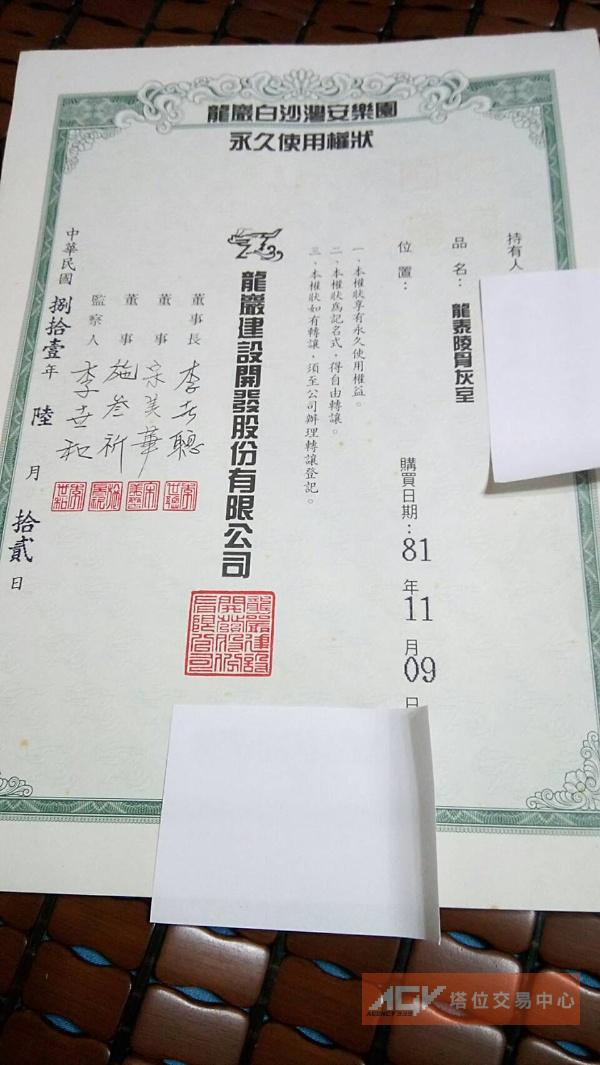 龍巖白沙灣安樂園
永久使用權狀
持有人
品名：龍泰陵骨灰室
位置：
購買日期：81年11月09日
一、本權狀享有永久使用權益。
二、本權狀為記名式，得自由轉讓。
三、本權狀如有轉讓，須至公司辦理轉讓登記。
龍巖建設開發股份有限公司
董事長 李世聰
董事 宋美華
董事 施叁祈
監察人 李世和
中華民國捌拾壹年陸月拾貳日
龍巖建設開發股份有限公司
AGK 塔位交易中心
AGENCY